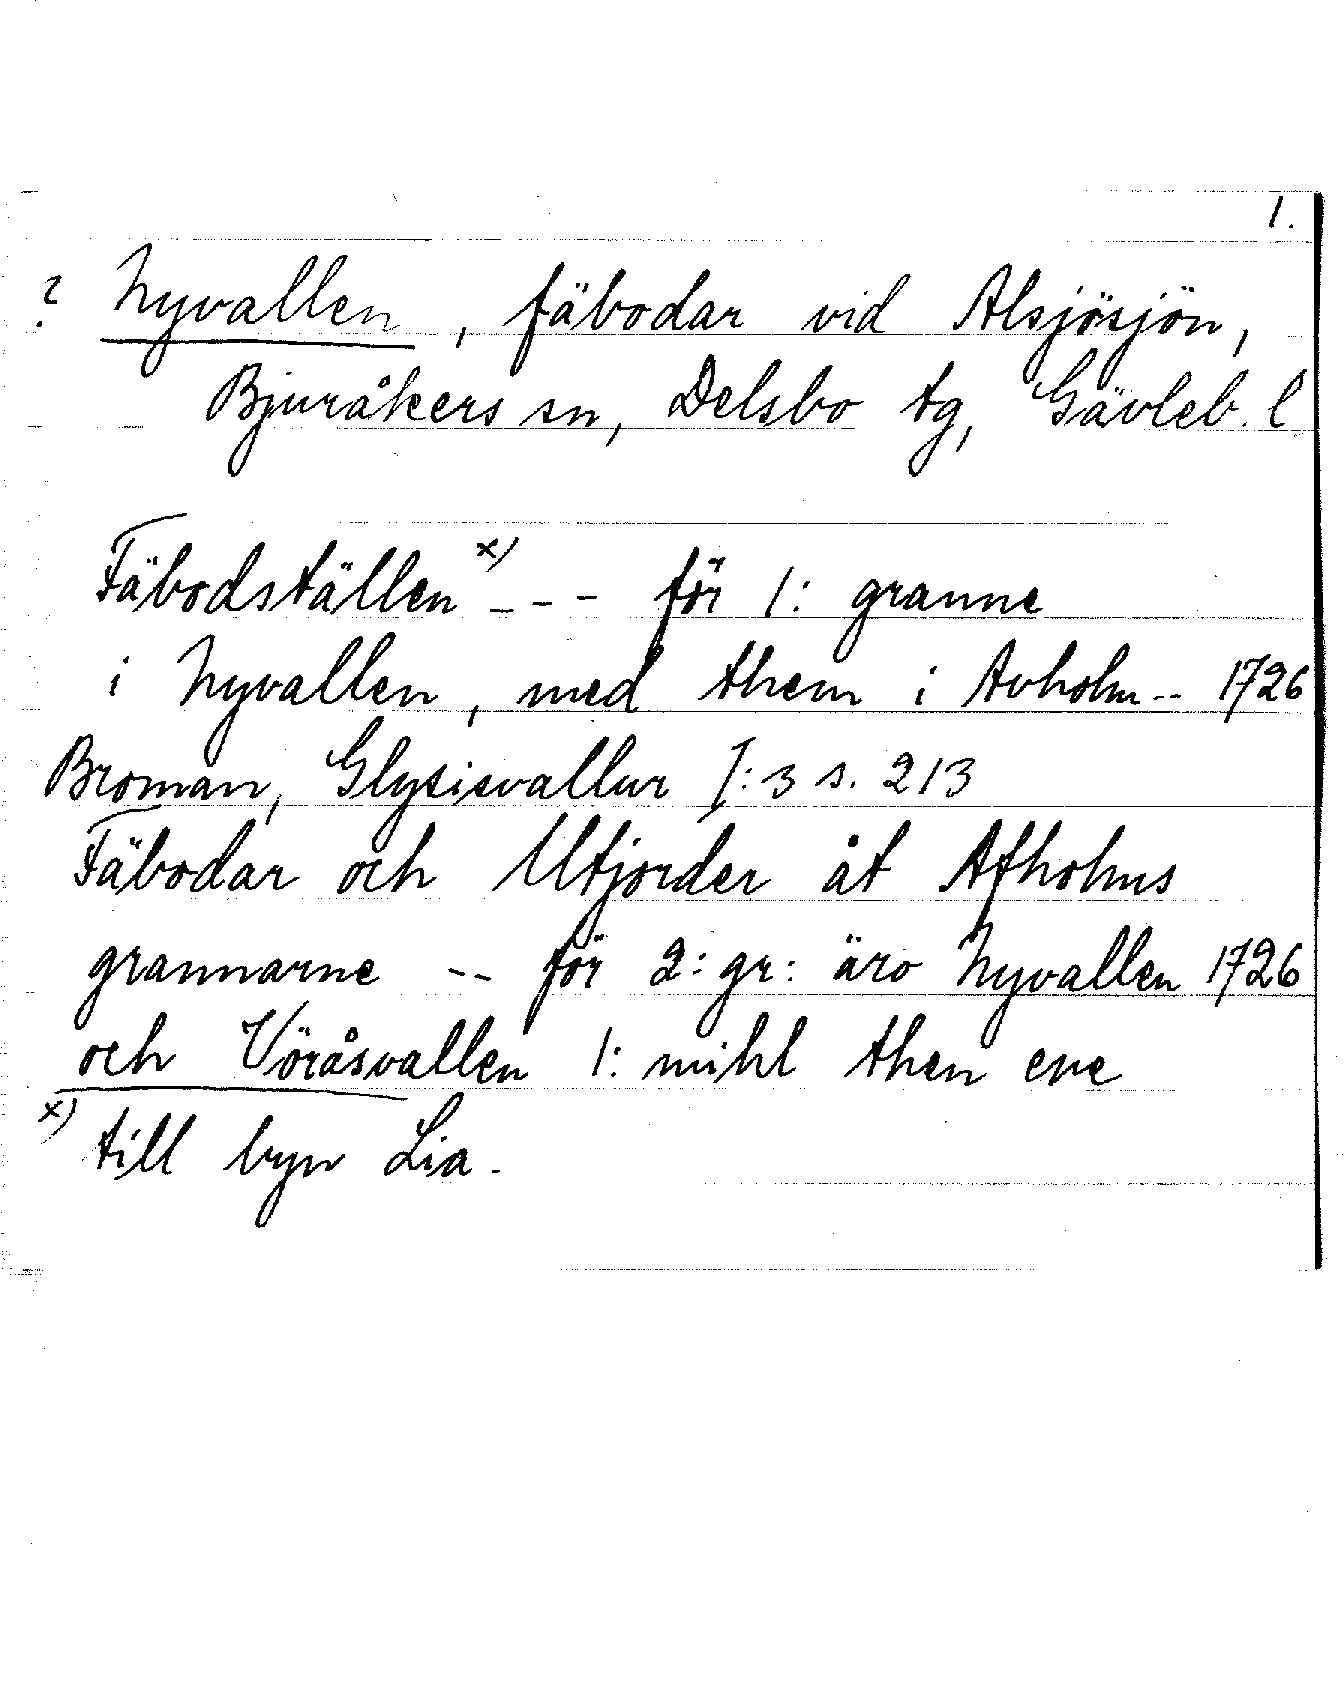 1.
? Nyvallen, fäbodar vid Alsjösjön,
Bjuråkers sn, Delsbo tg, Gävleb. l
Fäbodställen x) - - - för 1: granne
i Nyvallen, med them i Avholm -- 1726
Broman, Glysisvallur I:3 s. 213
Fäbodar och Utjorder åt Afholms
grannarne -- för 2: gr: äro Nyvallen 1726
och Vöråsvallen 1: mihl then ene
x) till byn Lia.